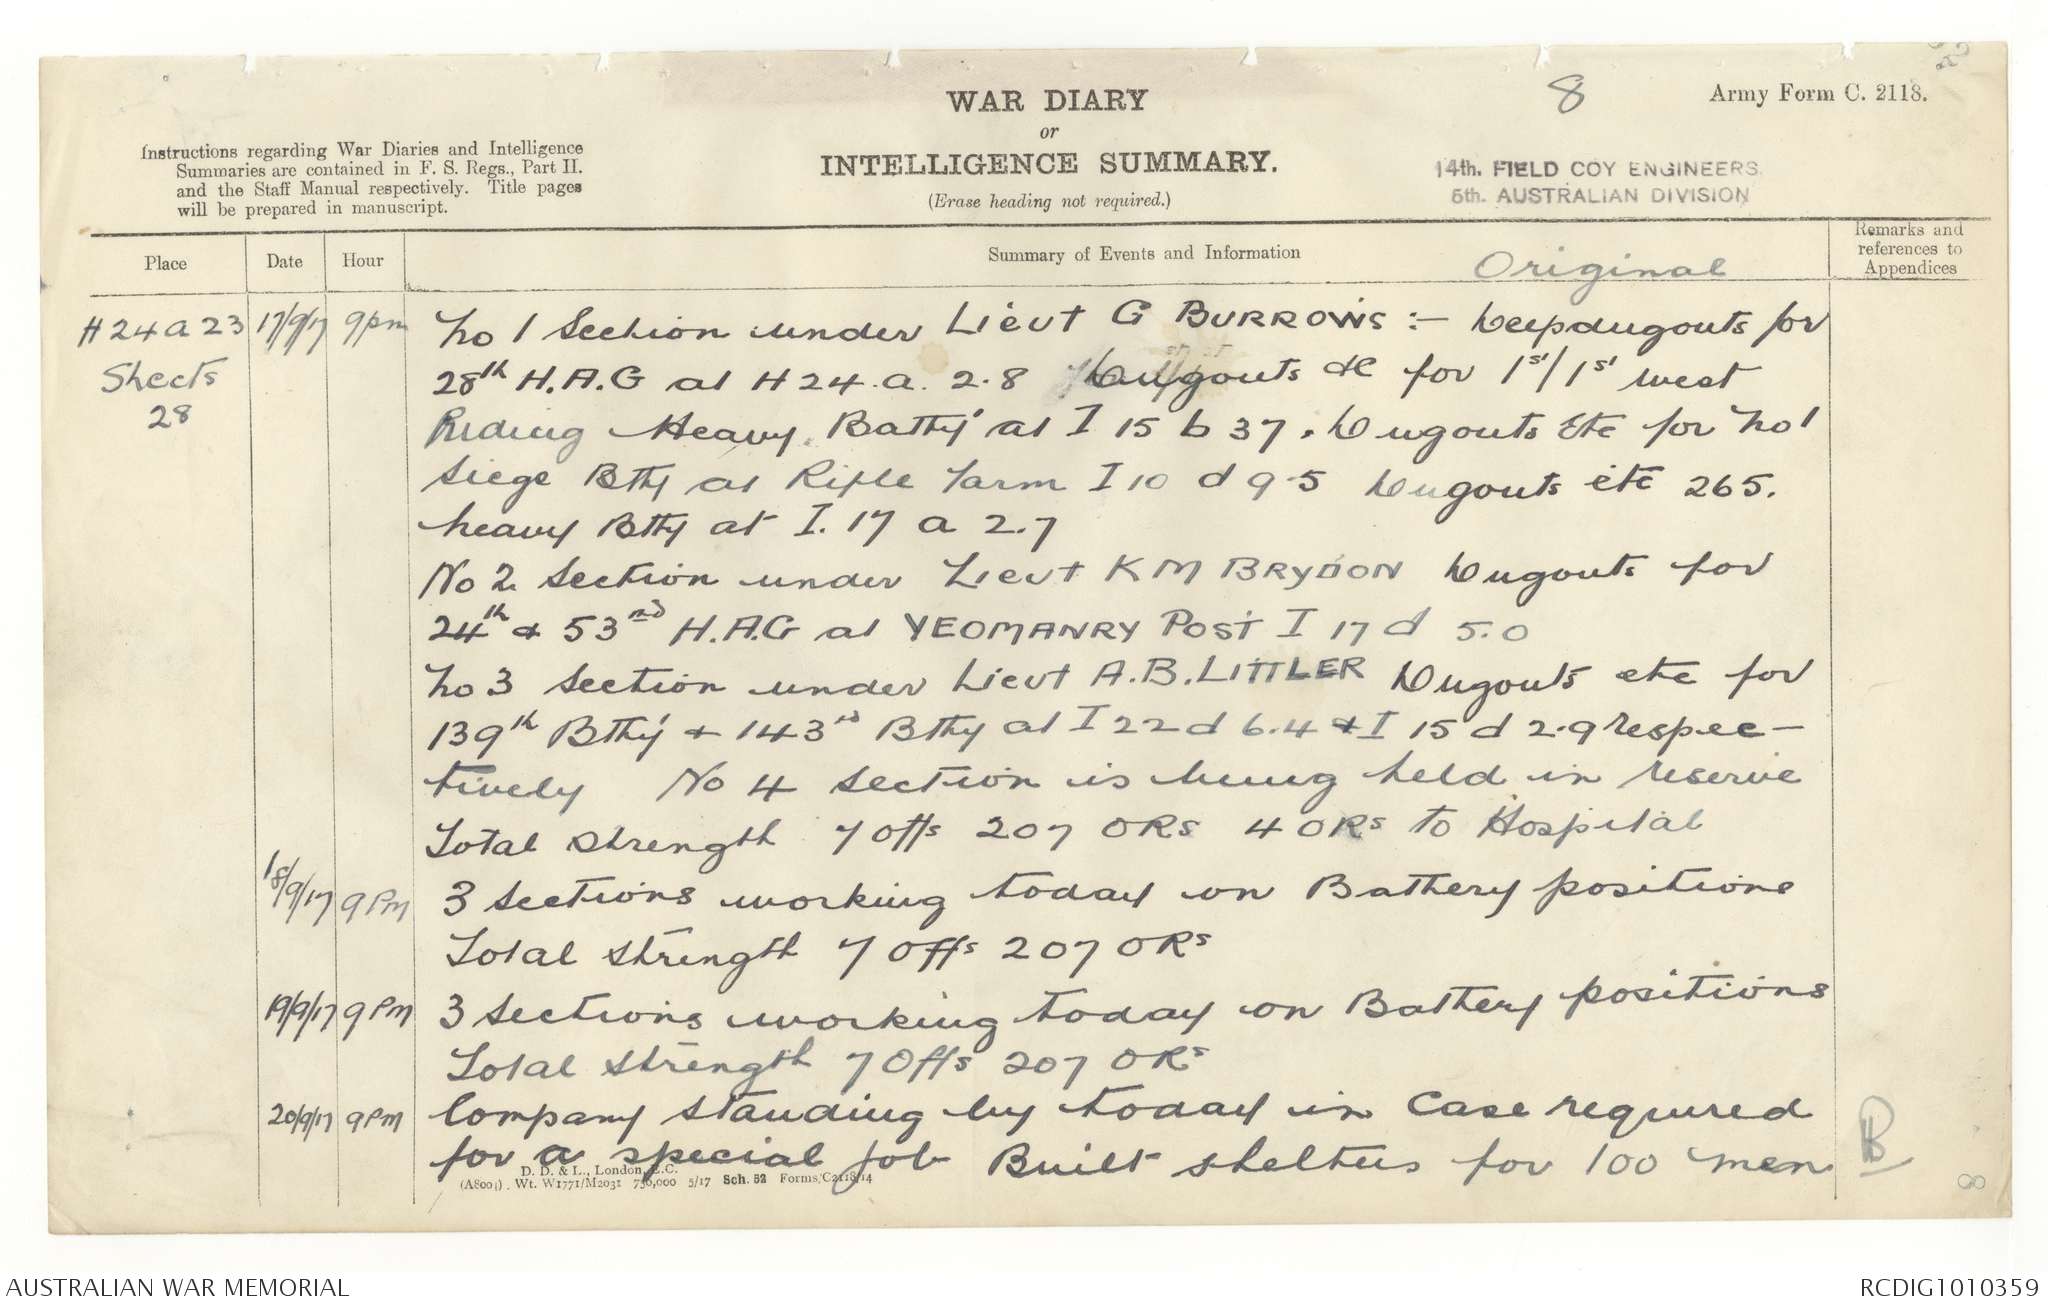 WAR DIARY
or
INTELLIGENCE SUMMARY.
(Erase heading not required.)
8
Army Form C. 2118.
Instructions regarding War Diaries and Intelligence
Summaries are contained in F. S. Regs., Part II.
and the Staff Manual respectively. Title pages
will be prepared in manuscript.
14th. FIELD COY ENGINEERS.
5th. AUSTRALIAN DIVISION
Place
Date
Hour
Summary of Events and Information
Original
Remarks and
references to
Appendices
H 24 a 23 17/9/17 9pm No 1 Section under Lieut G BURROWS :- Deepdugouts for
Sheets 28th H.A.G at H 24.a. 2.8 Dugouts &c for 1st/1st West
28 Riding Heavy Batty at I 15 b 37. Dugouts Etc for No 1
Siege Bty at Rifle Farm I 10 d 9.5 Dugouts etc 265.
heavy Btty at I. 17 a 2.7
No 2 Section under Lieut K M BRYDON Dugouts for
24th & 53rd H.A.G at YEOMANRY POST I 17 d 5.0
No 3 Section under Lieut A.B. LITTLER Dugouts etc for
139th Bthy & 143rd Bthy at I 22 d 6.4 & I 15 d 2.9 respec-
tively No 4 section is being held in reserve
Total Strength 7 Offs 207 ORs 4 ORs to Hospital
18/9/17 9 PM 3 Sections working today on Battery positions
Total strength 7 Offs 207 ORs
19/9/17 9 PM 3 Sections working today on Battery positions
Total strength 7 Offs 207 ORs
20/9/17 9 PM Company standing by today in case required
for a special job Built shelters for 100 men
B
8
D. D. & L., London, E.C.
(A8001). Wt. W1771/M2031 750,000 5/17 Sch. 52 Forms/C2118/14
AUSTRALIAN WAR MEMORIAL
RCDIG1010359